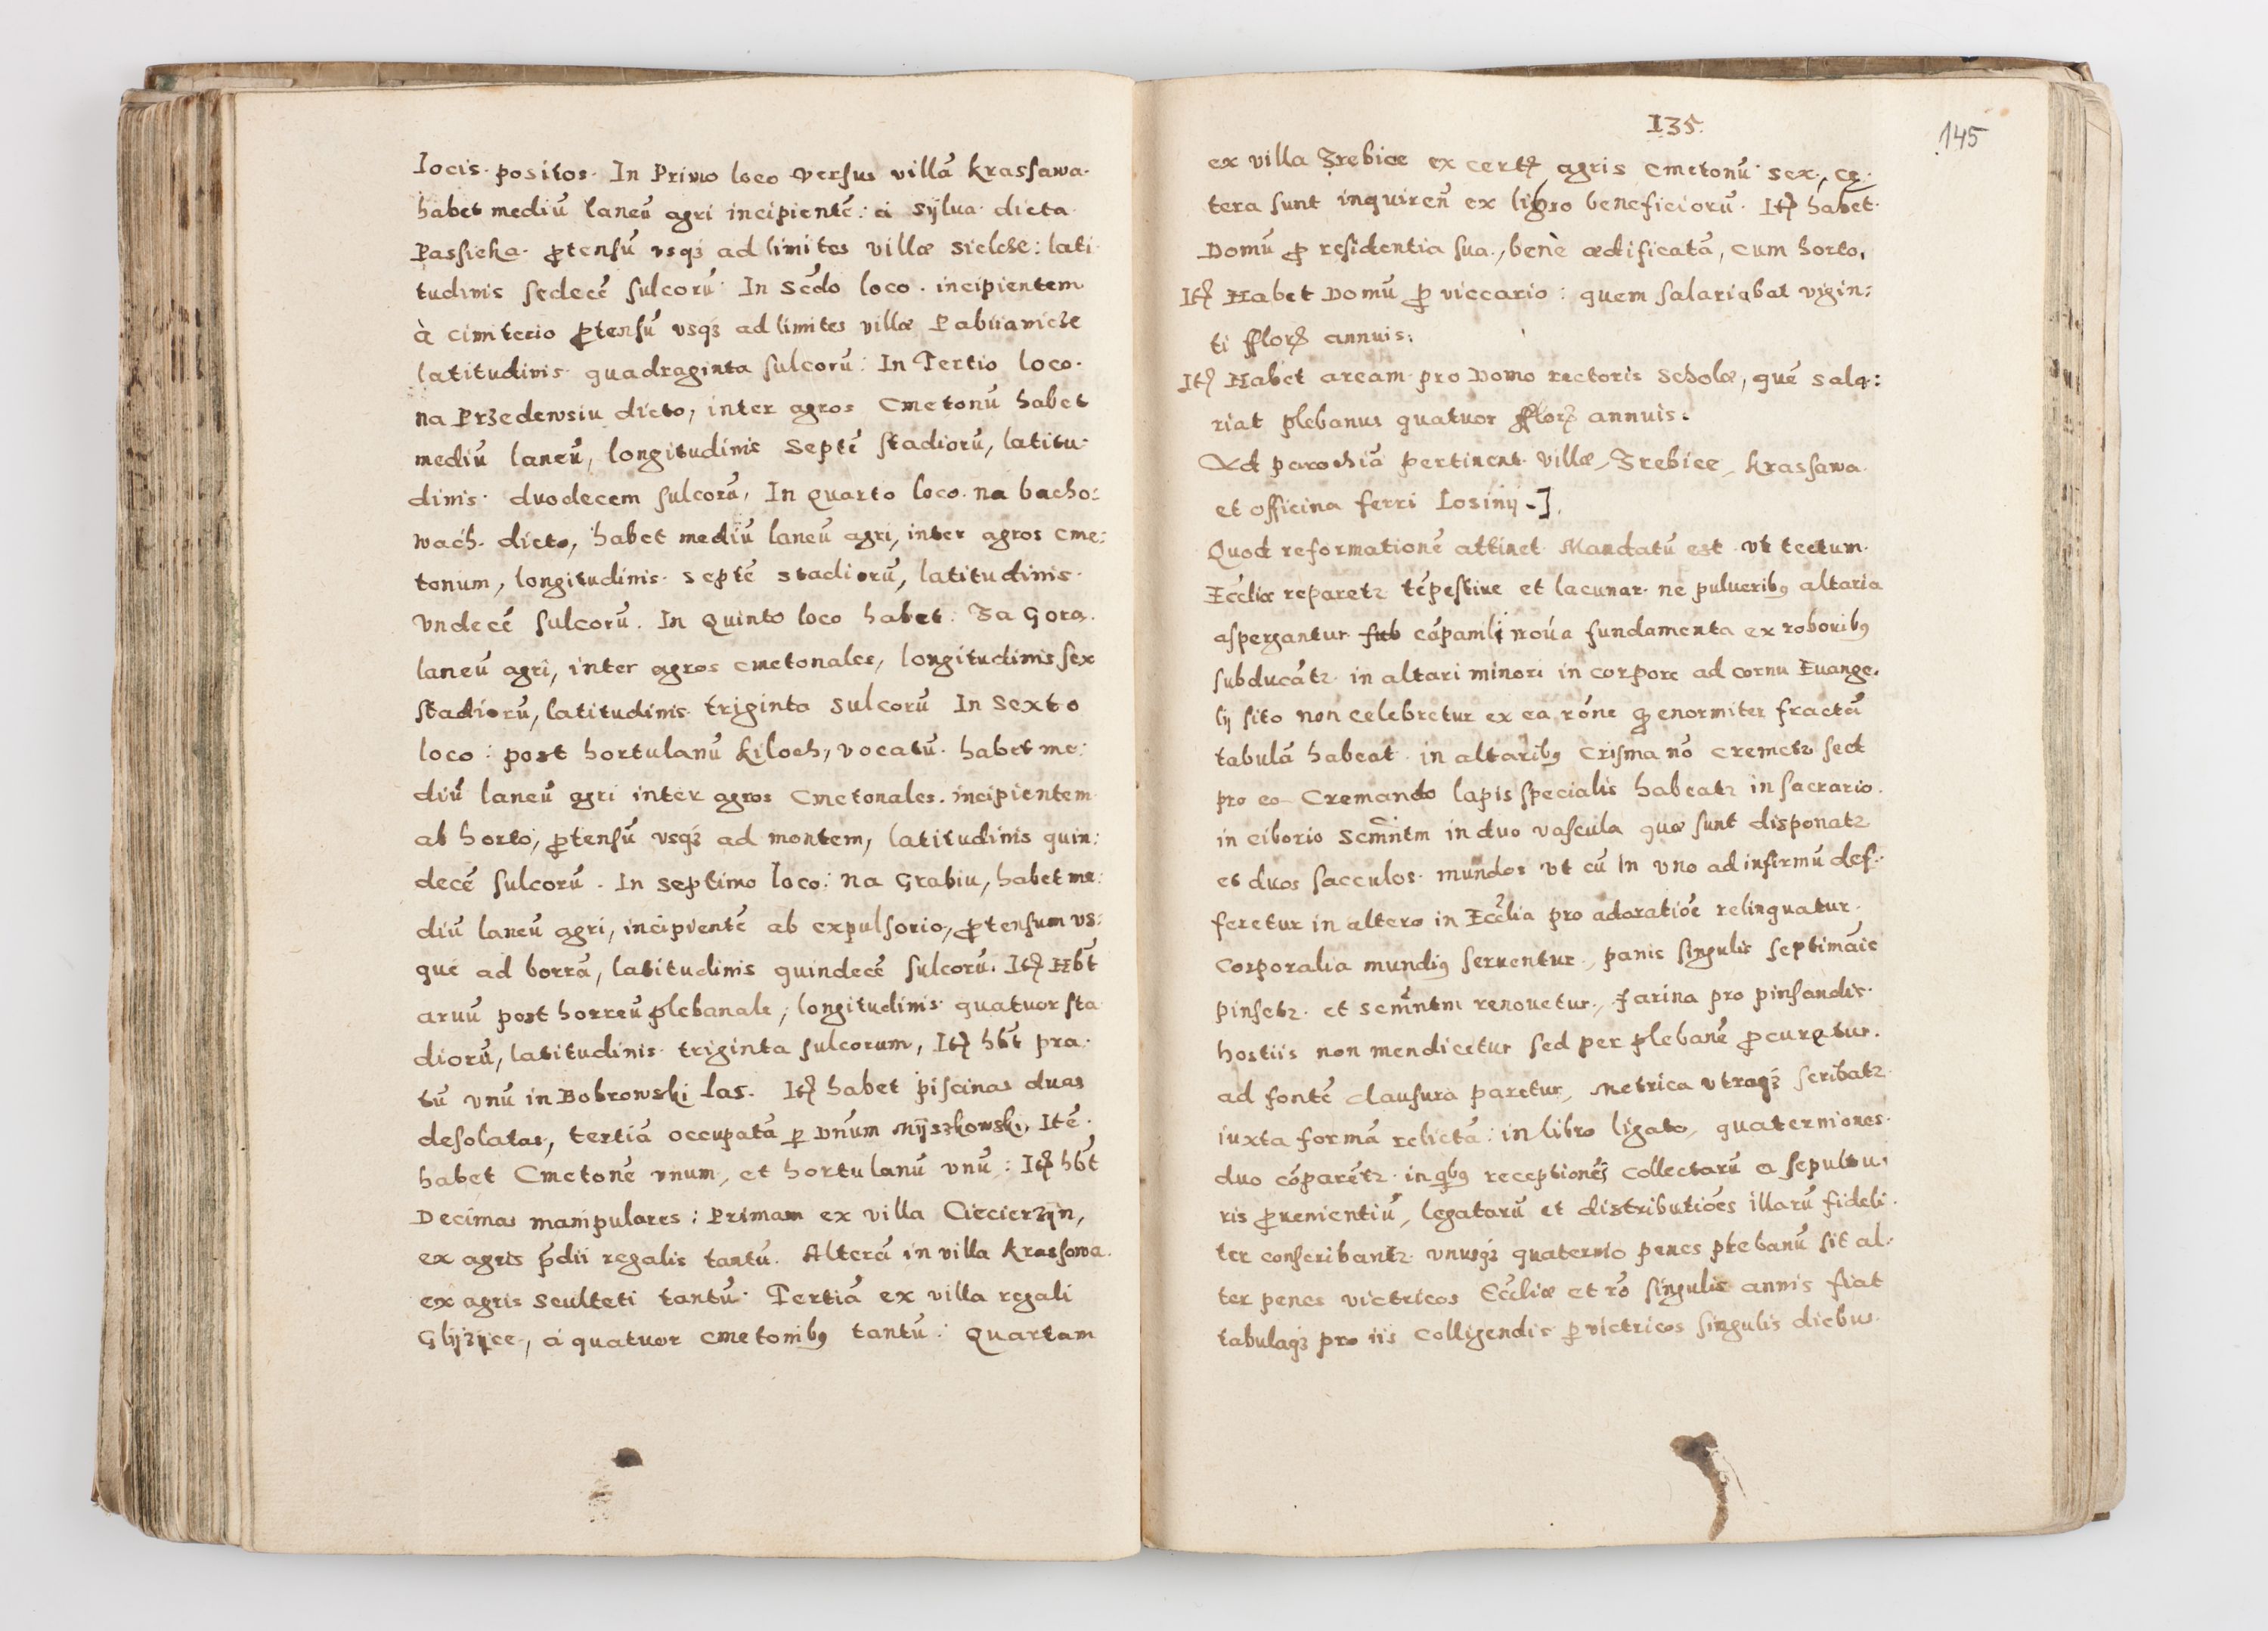 locis positos. In Primo loco versus villā krassawa.
habet mediū laneū agri incipientē: a Sylua dicta
Passieka. ptensū vsqȝ ad limites villæ Sielcze: lati
tudinis sedecē sulcorū. In Scdo loco. incipientem
à cimiterio ptensū vsqȝ ad limites villæ Pabiianicze
latitudinis quadraginta sulcorū: In Tertio loco.
na Przedewsiu dicto, inter agros Cmetonū habet
mediū laneū, longitudinis Septē stadiorū, latitu-
dinis duodecem sulcorū, In Quarto loco na bacho:
wach. dicto, habet mediū laneū agri, inter agros cme:
tonum, longitudinis septē stadiorū, latitudinis
vndecē sulcorū. In Quinto loco habet. Za Gorą.
laneū agri, inter agros cmetonales, longitudinis sex
stadiorū, latitudinis triginta Sulcorū In Sexto
loco: post hortulanū kiloch, vocatū. habet me:
diū laneū agri inter agros Cmetonales. incipientem
ab horto, ptensū vsqȝ ad montem, latitudinis quin:
decē sulcorū. In Septimo loco: na Grabiu, habet me:
diū laneū agri, incipientē ab expulsorio, ptensum vs:
que ad borrā, latitudinis quindecē sulcorū. Itȩ Hbt
aruū post horreū plebanale, longitudinis quatuor sta
diorū, latitudinis triginta sulcorum, Itȩ hbt pra.
tū vnū in Bobrowski las. Itȩ habet piscinas duas
desolatas, tertiā occupatā p Dnum Mijszkowski, Itē.
habet Cmetonē vnum, et hortulanū vnū: Itȩ hbt
Decimas manipulares: Primam ex villa Ciecierzyn,
ex agris pdii regalis tantū. Alterā in villa krassowa.
ex agris Sculteti tantū. Tertiā ex villa regali
Glijzijce, a quatuor cmetonibꝰ tantū: Quartam
135.
145
ex villa Zrebice ex certȩ agris Cmetonū sex, cę.
tera sunt inquiren̄ ex libro beneficiorū. Itȩ habet.
Domū p residentia sua, benè ædificatā, cum horto,
Itȩ Habet Domū p viccario: quem salariabat vigin:
ti fflorȩ annuis.
Itȩ Habet aream pro Domo rectoris Scholæ, quē sala:
riat plebanus quatuor fflorȩ annuis.
Ad parochiā pertinent villæ, Zrebice, krassawa
et officina ferri Iosinij.
Quod reformationē attinet. Mandatū est. vt tectum.
Eccliæ reparetꝛ tēpestiue et lacunar. ne pulueribꝰ altaria
aspergantur sub cāpanili noua fundamenta ex roboribꝰ
subducātꝛ. in altari minori in corpore ad cornu Euange.
lij sito non celebretur ex ea rōne q enormiter fractā
tabulā habeat. in altaribꝰ Crisma nō cremetꝛ sed
pro eo Cremando lapis specialis habeatꝛ in sacrario.
in ciborio Scmntm in duo vascula quæ sunt disponatꝛ
et duos sacculos. mundos vt cū in vno ad infirmū def..
feretur in altero in Ecclia pro adoratiōe relinquatur.
Corporalia mundiꝰ seruentur, panis singulis septimāis
pinsetꝛ. et scmntm renouetur, farina pro pinsandis.
hostiis non mendicetur sed per plebanē pcuretur.
ad fontē clausura paretur, Metrica vtraqȝ scribatꝛ
iuxta formā relictā: in libro ligato, quaterniones.
duo cōparētꝛ. in qbꝰ receptiones Collectarū a sepultu.
ris puenientiū, legatarū et distributiōes illarū fideli.
ter conscribantꝛ. vnusqȝ quaternio penes plebanū sit al.
ter penes victricos Eccliæ et rō singulis annis fiat
tabulaqȝ pro iis Colligendis p victricos singulis diebus.